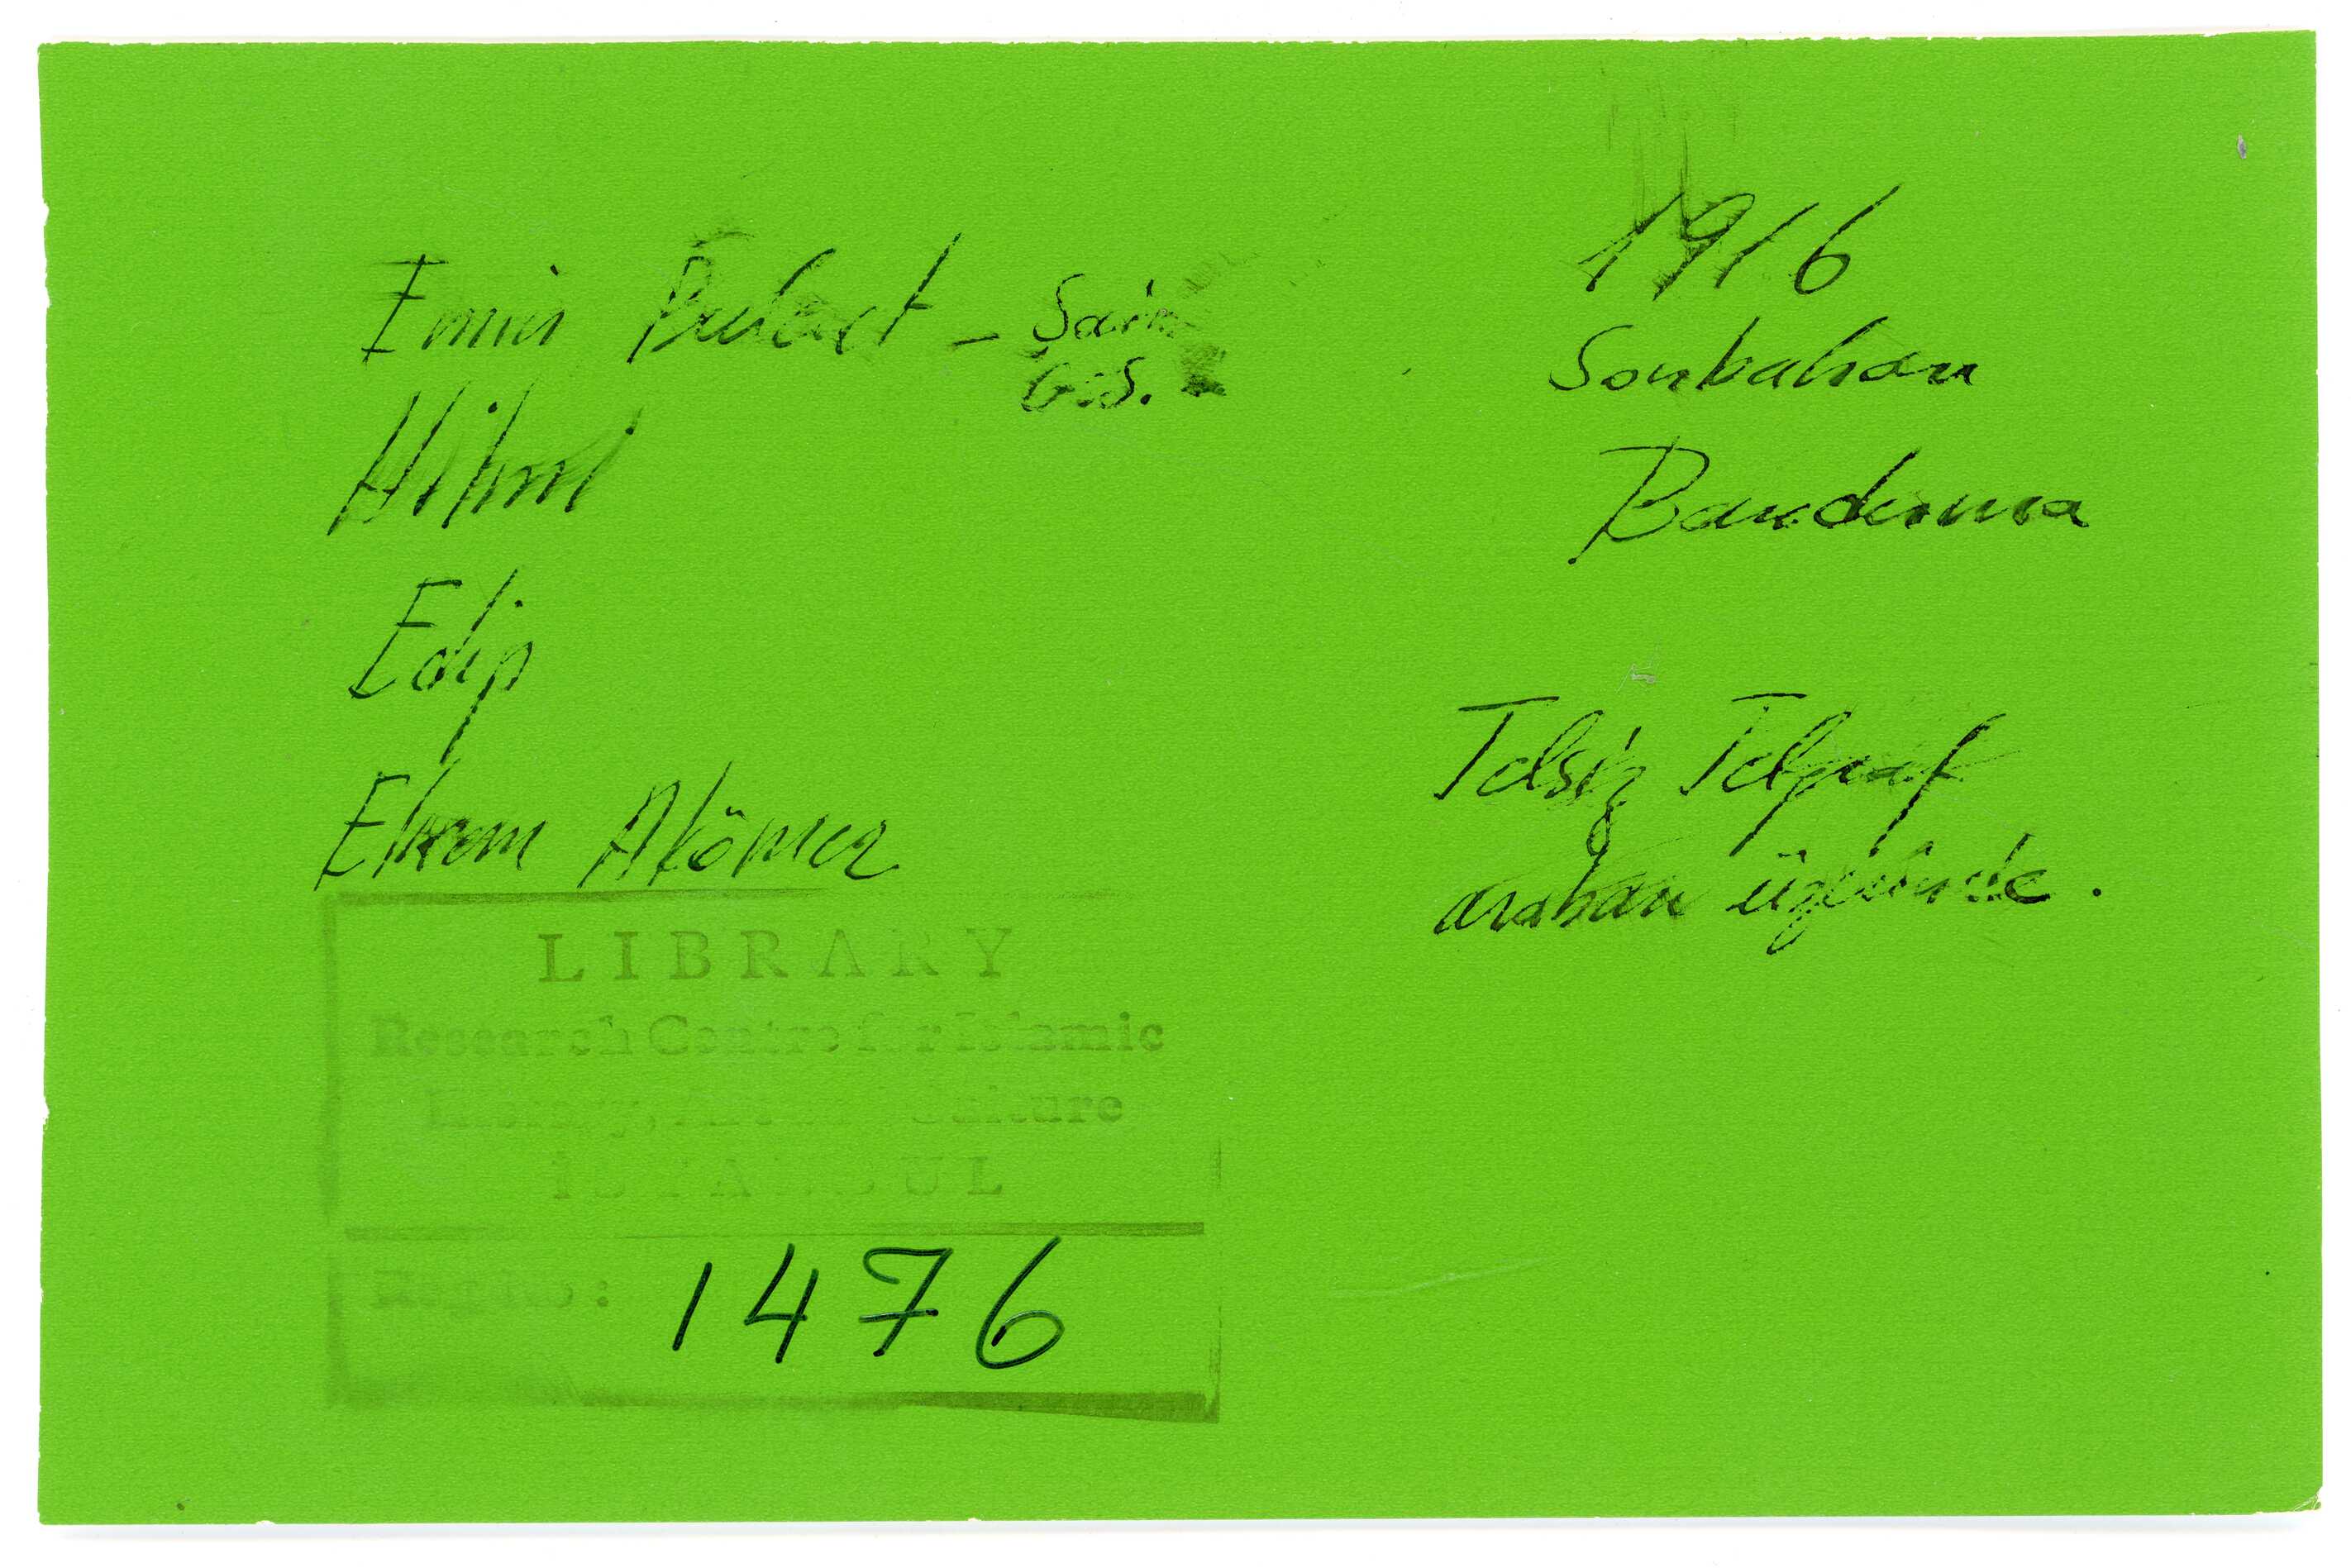 Emin Bulent - Şair
G.S.
Hilmi
Edip
Ekrem Akömer
1916
Sonbahar
Bandırma
Telsiz Telgraf
arabası üzerinde.
LIBRARY
Research Centre for Islamic
History, Art and Culture
ISTANBUL
Reg. No :
1476